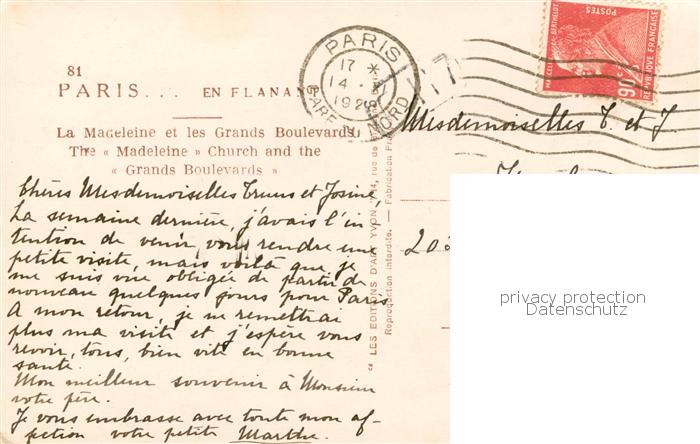 81
PARIS... EN FLANANT
La Madeleine et les Grands Boulevards
The « Madeleine » Church and the
« Grands Boulevards »
PARIS
17 *
14 · XI
1929
GARE DU NORD
17
MARCELIN BERTHELOT
POSTES
90c
REPUBLIQUE FRANÇAISE
Mesdemoiselles T. et J
202
« LES EDITIONS D'ART YVON », 14, rue de
Reproduction interdite. — Fabrication Fra
Chères Mesdemoiselles Truus et Josine,
La semaine dernière, j'avais l'in
tention de venir vous rendre une
petite visite, mais voilà que je
me suis vue obligée de partir de
nouveau quelques jours pour Paris
A mon retour, je ne remettrai
plus ma visite et j'espère vous
revoir, tous, bien vite en bonne
santé.
Mon meilleur souvenir à Monsieur
votre père.
Je vous embrasse avec toute mon af-
fection votre petite Marthe.
privacy protection
Datenschutz